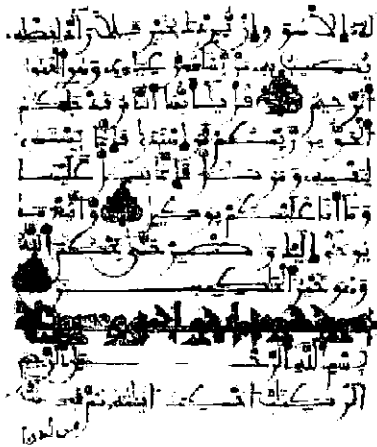 له الا هو وان يردك بخير فلا راد لفضله
يصيب به من يشا من عباده وهو الغفور
الرحيم قل يايها الناس قد جاكم
الحق من ربكم فمن اهتدى فانما يهتدي
لنفسه ومن ضل فانما يضل عليها
وما انا عليكم بوكيل واتبع ما
يوحى اليك واصبر حتى يحكم الله
وهو خير الحكمين
بسم الله الرحمن الرحيم
الر كتب احكمت ايته ثم فصلت
من لدن